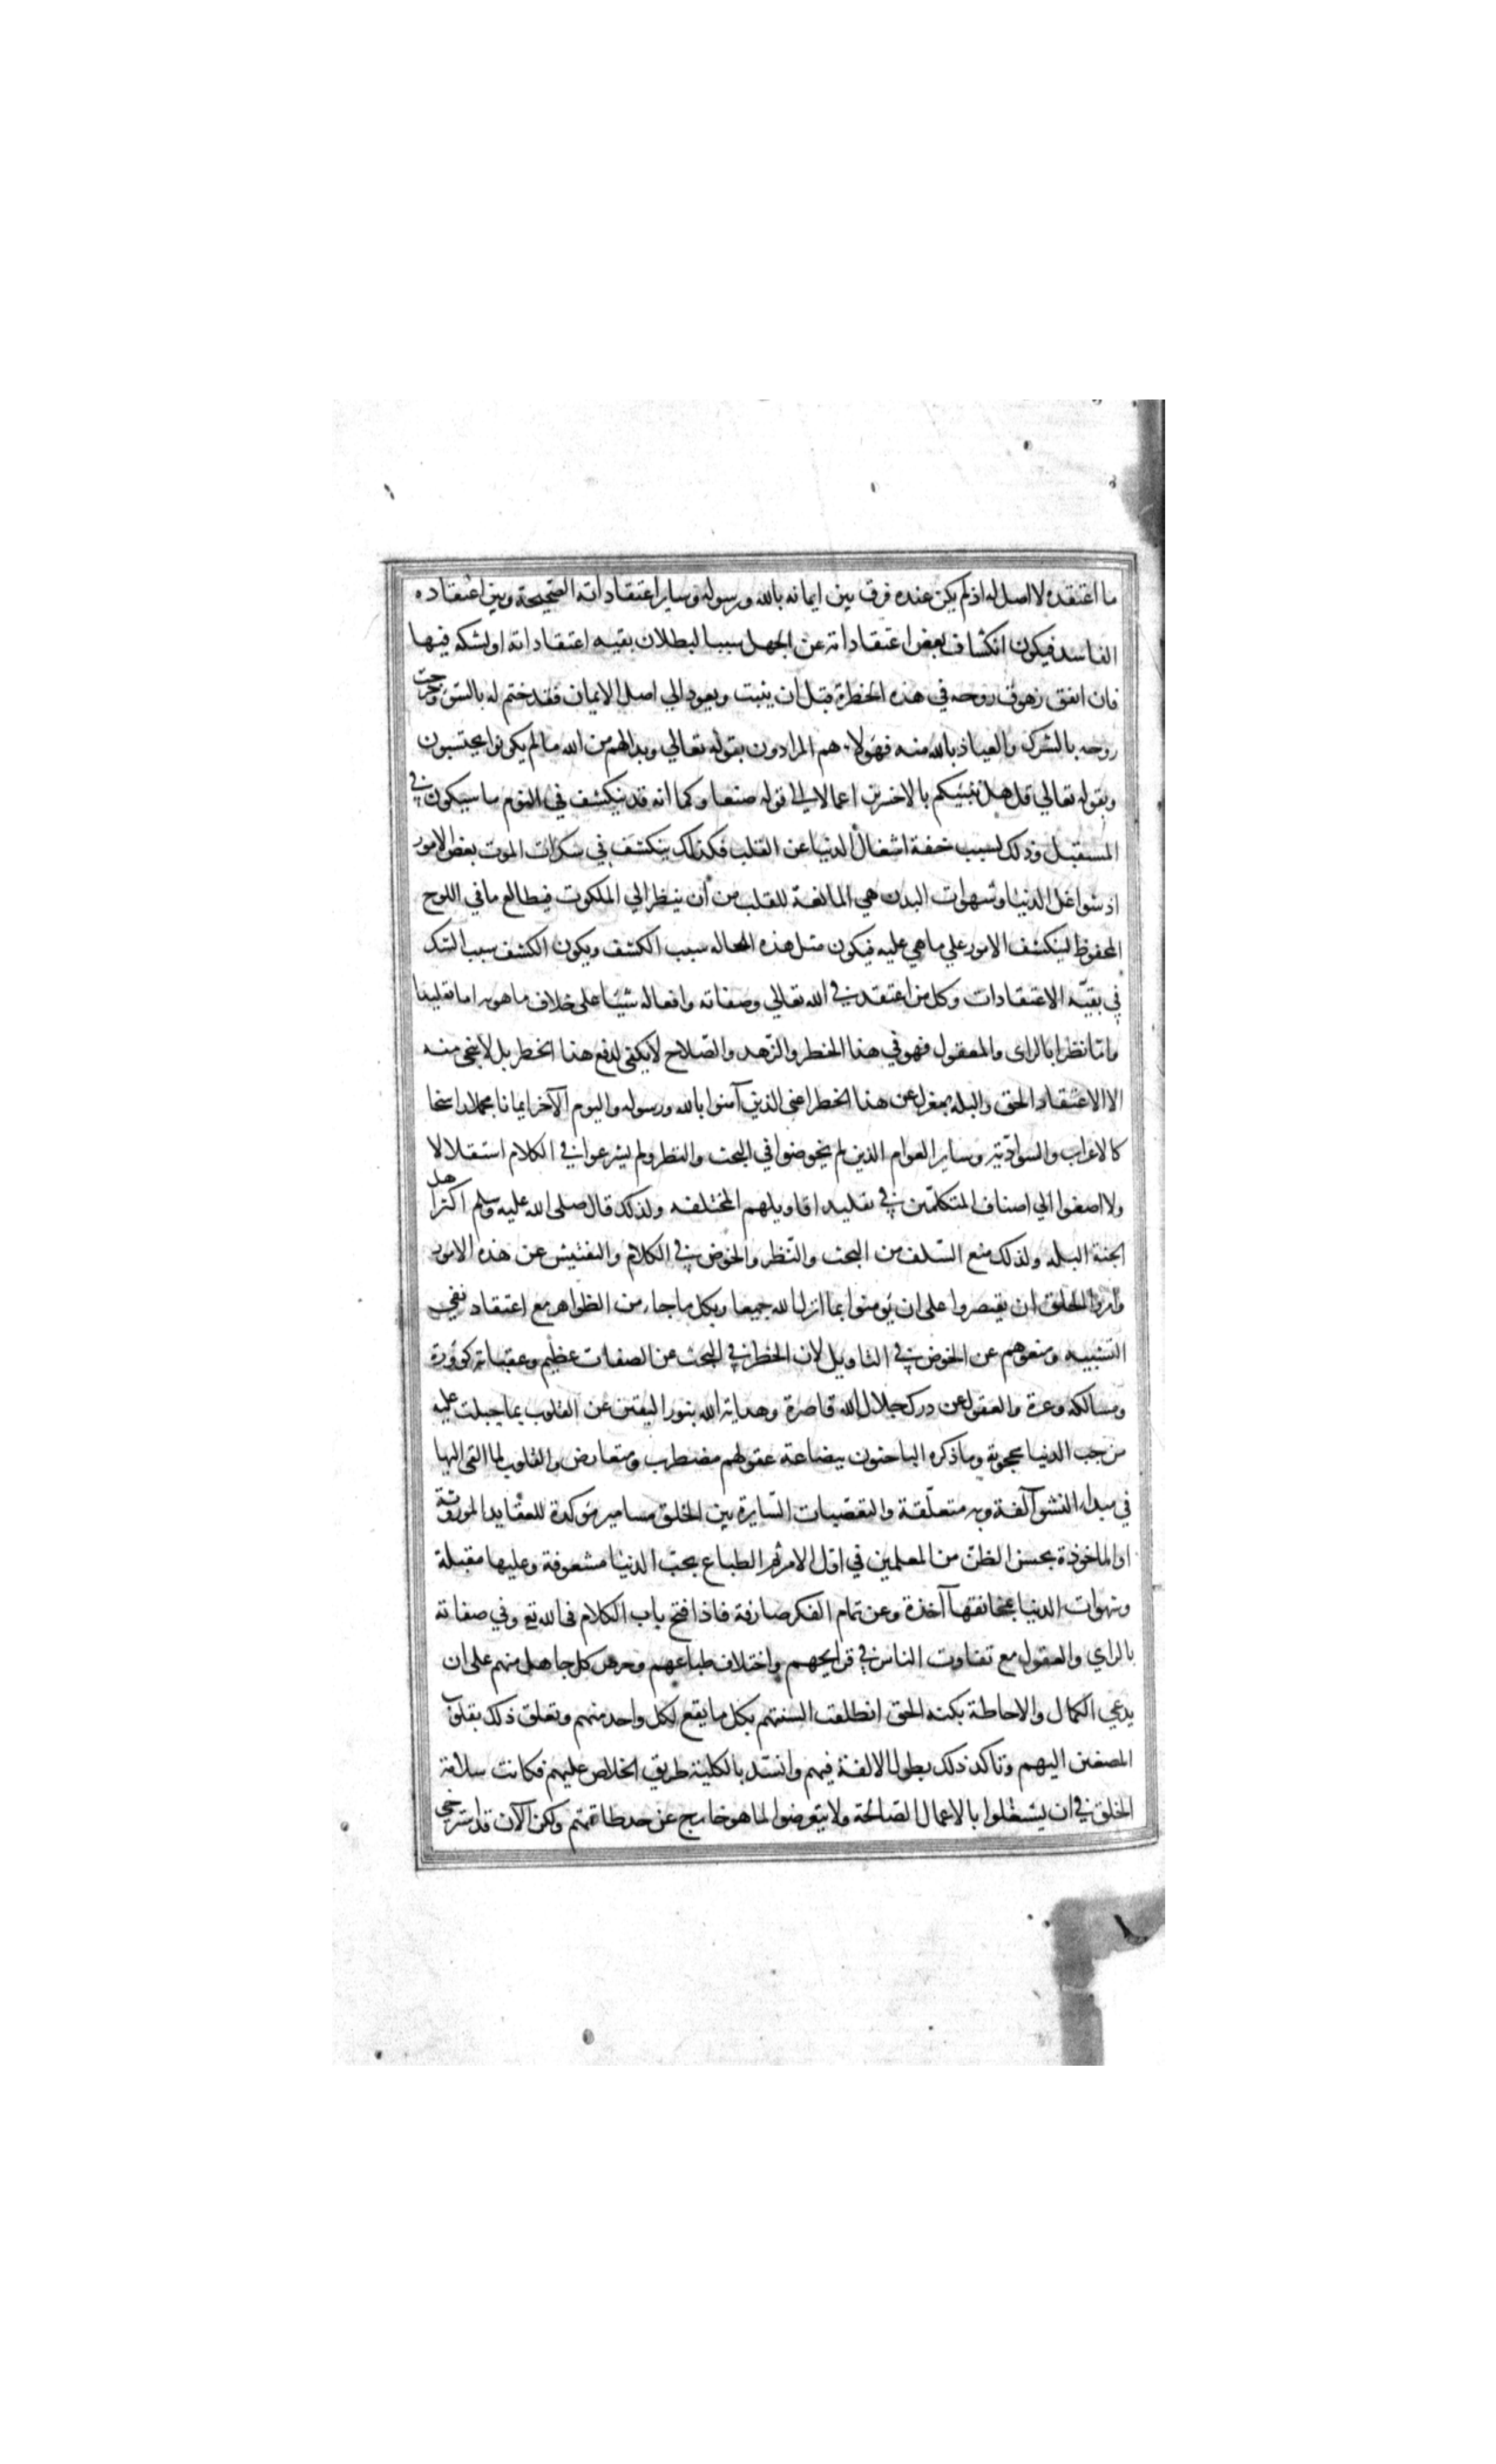 ما اعتقده لا اصل له اذ لم يكن عنده فرق بين ايمانه بالله ورسوله وساير اعتقاداته الصحيحة وبين اعتقاده
الفاسد فيكون انكشاف بعض اعتقاداته عن الجهل سببا لبطلان بقيه اعتقاداته او لشكه فيها
فان اتفق زهوق روحه في هذه الخطرة قبل ان يثبت ويعود الي اصل الايمان فقد ختم له بالسوء وخرجت
روحه بالشرك والعياذ بالله منه فهولاء هم المرادون بقوله تعالي وبدالهم من الله ما لم يكونوا يحتسبون
وبقوله تعالي قل هل ننبئكم بالاخسرين اعمالا الي قوله صنعا وكما انه قد ينكشف في النوم ما سيكون في
المستقبل وذلك بسبب خفة اشغال الدنيا عن القلب فكذلك ينكشف في سكرات الموت بعض الامور
اذ شواغل الدنيا وشهوات البدن هي المانعة للقلب من ان ينظر الي الملكوت فيطالع ما في اللوح
المحفوظ لينكشف الامور علي ما هي عليه فيكون مثل هذه الحاله سبب الكشف ويكون الكشف سبب الشك
في بقيّه الاعتقادات وكل من اعتقد في الله تعالي وصفاته وافعاله شيئا على خلاف ما هو به اما تقليدا
واما نظرا بالراى والمعقول فهو في هذا الخطر والزهد والصّلاح لا يكفى لدفع هذا الخطر بل لا ينجى منه
الا الاعتقاد الحق والبله بمعزل عن هذا الخطر اعنى الذين آمنوا بالله ورسوله واليوم الآخر ايمانا مجملا راسخا
كالاعراب والسوادية وساير العوام الذين لم يخوضوا في البحث والنظر ولم يشرعوا في الكلام استقلالا
ولا اصغوا الي اصناف المتكلّمين في تقليد اقاويلهم المختلفه ولذلك قال صلى الله عليه وسلم اكثر اهل
الجنة البله ولذلك منع السّلف من البحث والنّظر والخوض في الكلام والتفتيش عن هذه الامور
وامروا الخلق ان يقتصروا على ان يؤمنوا بما انزل الله جميعا وبكل ما جاء من الظواهر مع اعتقاد نفي
التشبيه ومنعوهم عن الخوض في التاويل لان الخطر في البحث عن الصفات عظيم وعقباته كؤودة
ومسالكه وعرة والعقول عن درك جلال الله قاصرة وهداية الله بنور اليقين عن القلوب بما جبلت عليه
من حب الدنيا محجوبة وما ذكره الباحثون ببضاعة عقولهم مضطرب ومتعارض والقلوب لما القى اليها
في مبداء النشو آلفة وبه متعلّقة والتعصبات السّايرة بين الخلق مسامير مؤكدة للعقايد الموروثة
او الماخوذة بحسن الظن من المعلمين في اول الامر ثم الطباع بحبّ الدنيا مشعوفة وعليها مقبلة
وشهوات الدنيا بمخانقها آخذة وعن تمام الفكر صارفة فاذا فتح باب الكلام فى الله تع وفي صفاته
بالراي والعقول مع تفاوت الناس في قرايحهم واختلاف طباعهم وحرص كل جاهل منهم على ان
يدعي الكمال والاحاطة بكنه الحق انطلقت السنتهم بكل ما يقع لكل واحد منهم وتعلق ذلك بقلوب
المصغين اليهم وتاكد ذلك بطول الالفة فيهم وانسد بالكلية طريق الخلاص عليهم فكانت سلامة
الخلق في ان يشتغلوا بالاعمال الصّالحة ولا يتعرضوا لما هو خارج عن حد طاقتهم ولكن الآن قد استرخى